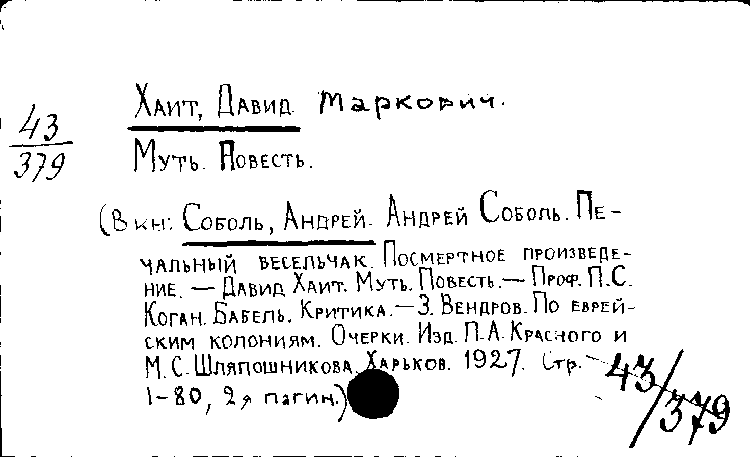 Хаит, Давид Маркович.
43
379
Муть. Повесть.
(В кн: Соболь, Андрей. Андрей Соболь. Пе-
чальный весельчак. Посмертное произведе-
ние. — Давид Хаит. Муть. Повесть. — Проф. П.С.
Коган. Бабель. Критика. — З. Вендров. По еврей-
ским колониям. Очерки. Изд. П.А. Красного и
М.С. Шляпошникова. Харьков. 1927. Стр.
1-80, 2я пагин.)
43/379